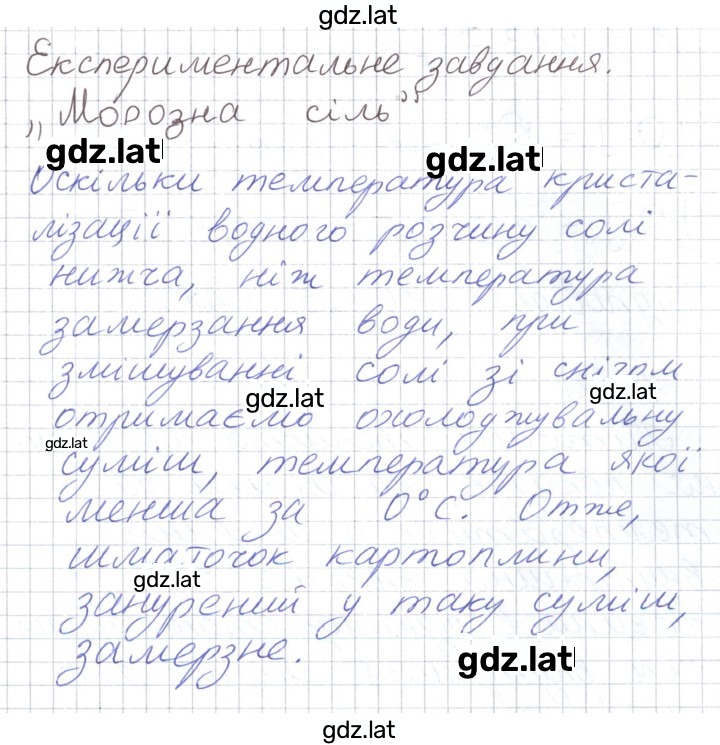 gdz.lat
Експериментальне завдання.
„Морозна сіль”
gdz.lat gdz.lat
Оскільки температура криста-
лізації водного розчину солі
нижча, ніж температура
замерзання води, при
змішуванні солі зі снігом
gdz.lat gdz.lat
отримаємо охолоджувальну
gdz.lat
суміш, температура якої
менша за 0°C. Отже,
шматочок картоплини,
gdz.lat
занурений у таку суміш,
замерзне.
gdz.lat
gdz.lat